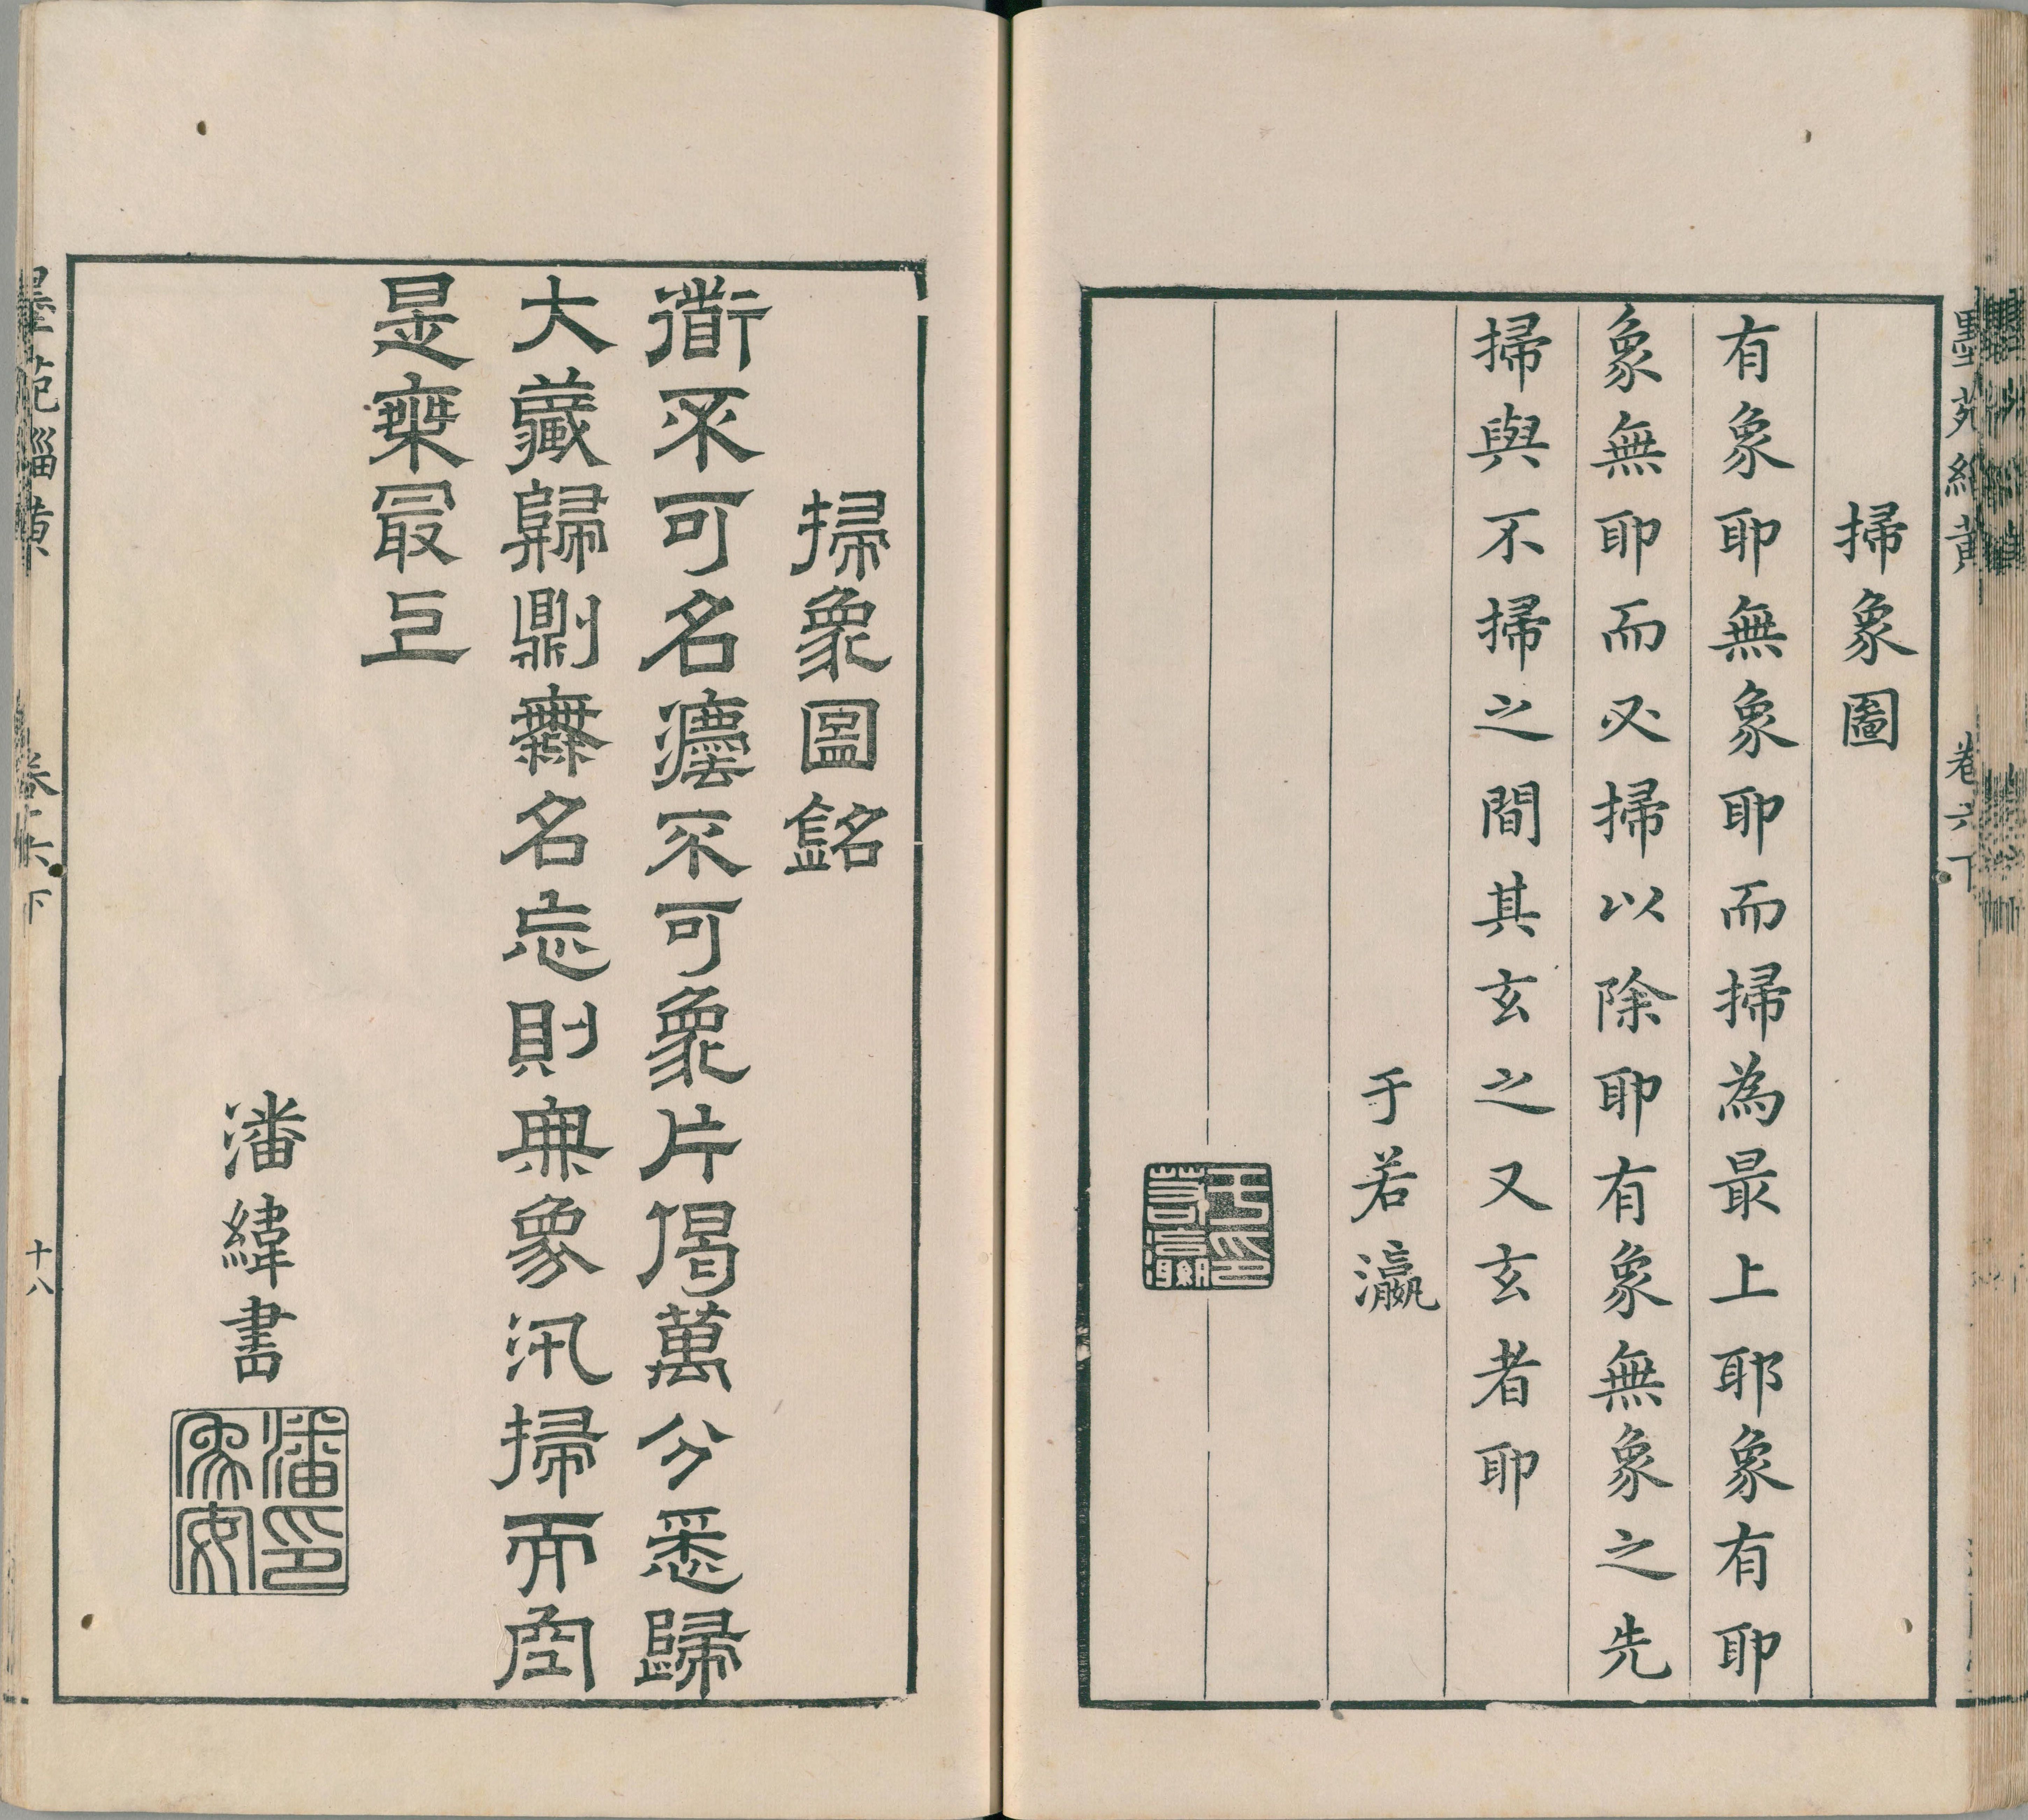 掃象圖
有象耶無象耶而掃為最上耶象有耶
象無耶而必掃以除耶有象無象之先
掃與不掃之間其玄之又玄者耶
于若瀛
掃象圖銘
衟不可名灋不可象片偈萬分悉歸
大藏歸鼎無名忘則無象汛掃而空
是無最上
潘緯書
潘印
墨苑緇黃
卷六下
十八